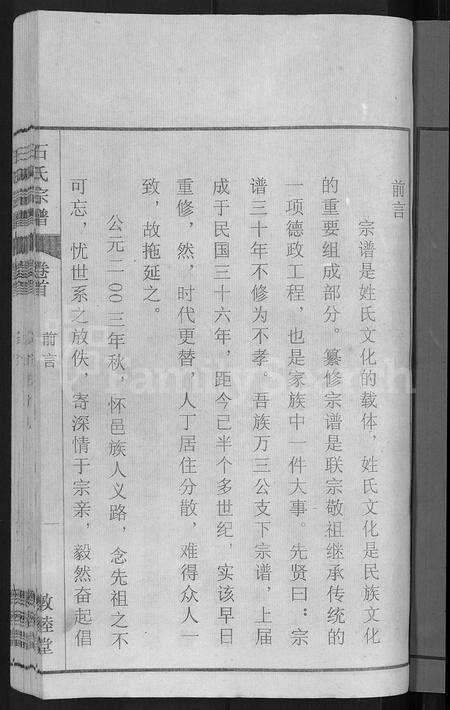 前言
宗谱是姓氏文化的载体，姓氏文化是民族文化
的重要组成部分。纂修宗谱是联宗敬祖继承传统的
一项德政工程，也是家族中一件大事。先贤曰：宗
谱三十年不修为不孝。吾族万三公支下宗谱，上届
成于民国三十六年，距今已半个多世纪，实该早日
重修，然，时代更替，人丁居住分散，难得众人一
致，故拖延之。
公元二00三年秋，怀邑族人义路，念先祖之不
可忘，忧世系之放佚，寄深情于宗亲，毅然奋起倡
石氏宗谱
卷首
前言
一
敦睦堂
FamilySearch